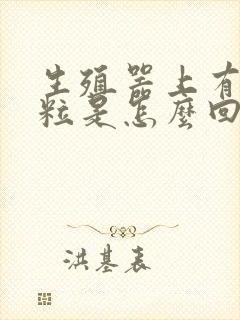 生殖器上有
粒是怎麼回
洪基表